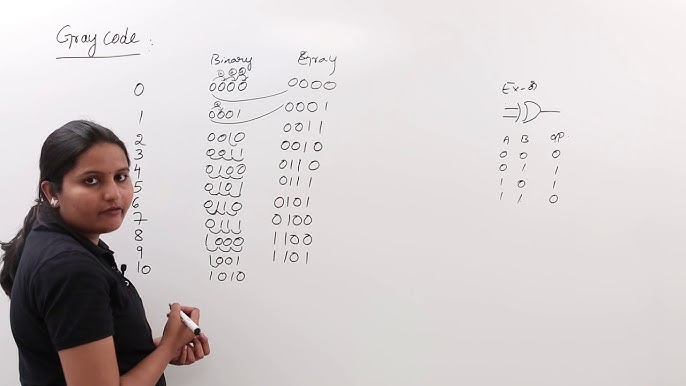 Gray code :
Binary Gray
0 0000 0000
1 0001 0001
2 0010 0011
3 0011 0010
4 0100 0110
5 0101 0111
6 0110 0101
7 0111 0100
8 1000 1100
9 1001 1101
10 1010
Ex-or
A B op
0 0 0
0 1 1
1 0 1
1 1 0